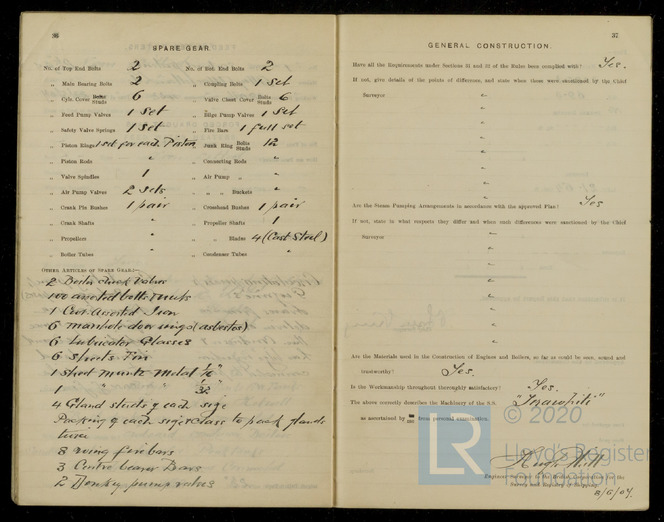 36
SPARE GEAR.
No. of Top End Bolts 2 No. of Bot. End Bolts 2
„ Main Bearing Bolts 2 „ Coupling Bolts 1 Set
„ Cyln. Cover Bolts Studs 6 „ Valve Chest Cover Bolts Studs 6
„ Feed Pump Valves 1 Set „ Bilge Pump Valves 1 Set
„ Safety Valve Springs 1 Set „ Fire Bars 1 full set
„ Piston Rings 1 set for each Piston „ Junk Ring Bolts Studs 12
„ Piston Rods „ „ Connecting Rods „
„ Valve Spindles 1 „ Air Pump „ „
„ Air Pump Valves 2 Sets „ „ „ Buckets „
„ Crank Pin Bushes 1 pair „ Crosshead Bushes 1 pair
„ Crank Shafts „ „ Propeller Shafts 1
„ Propellers „ „ „ Blades 4 (Cast Steel)
„ Boiler Tubes „ „ Condenser Tubes „
OTHER ARTICLES OF SPARE GEAR:—
2 Boiler check valves
100 assorted bolts & nuts
1 Cwt Assorted Iron
6 manhole door rings (asbestos)
6 Lubricator Glasses
6 sheets Tin
1 sheet muntz metal 1/16"
1 " " " 1/32"
4 Gland studs of each size
Packing of each size & class to pack glands
twice
8 wing fire bars
3 Centre bearer Bars
2 Donkey pump valves
37
GENERAL CONSTRUCTION.
Have all the Requirements under Sections 31 and 32 of the Rules been complied with? Yes.
If not, give details of the points of difference, and state when these were sanctioned by the Chief
Surveyor „
„
„
„
„
„
„
Are the Steam Pumping Arrangements in accordance with the approved Plan? Yes
If not, state in what respects they differ and when such differences were sanctioned by the Chief
Surveyor „
„
„
„
„
„
„
Are the Materials used in the Construction of Engines and Boilers, so far as could be seen, sound and
trustworthy? Yes.
Is the Workmanship throughout thoroughly satisfactory? Yes.
The above correctly describes the Machinery of the S.S.
as ascertained by from personal examination.
Engineer Surveyor to the British Corporation for the
Survey and Registry of Shipping.
LR
© 2020
Lloyd's Register
Foundation